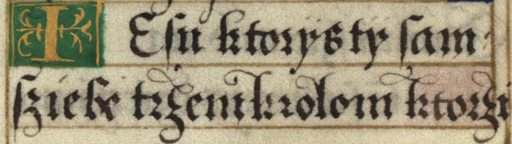 IEſu ktorÿs tÿ ſam
ſziebe trzem krolom ktorzi